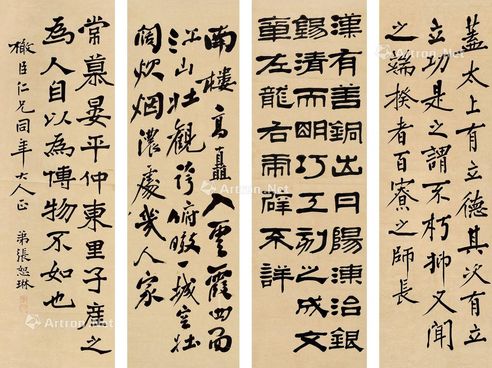 蓋太上有立德其次有立
立功是之謂不朽抑又聞
之端揆者百寮之師長
漢有善銅出丹陽涷治銀
錫清而明巧工刻之成文
章左龍右虎辟不詳
南樓高矗入雲霞四面
江山壯觀誇俯瞰一城空壯
闊炊烟濃處幾人家
常慕晏平仲東里子產之
為人自以為博物不如也
橄臣仁兄同年大人正 弟張恕琳
Artron.Net
Artron.Net
Artron.Net
Artron.Net